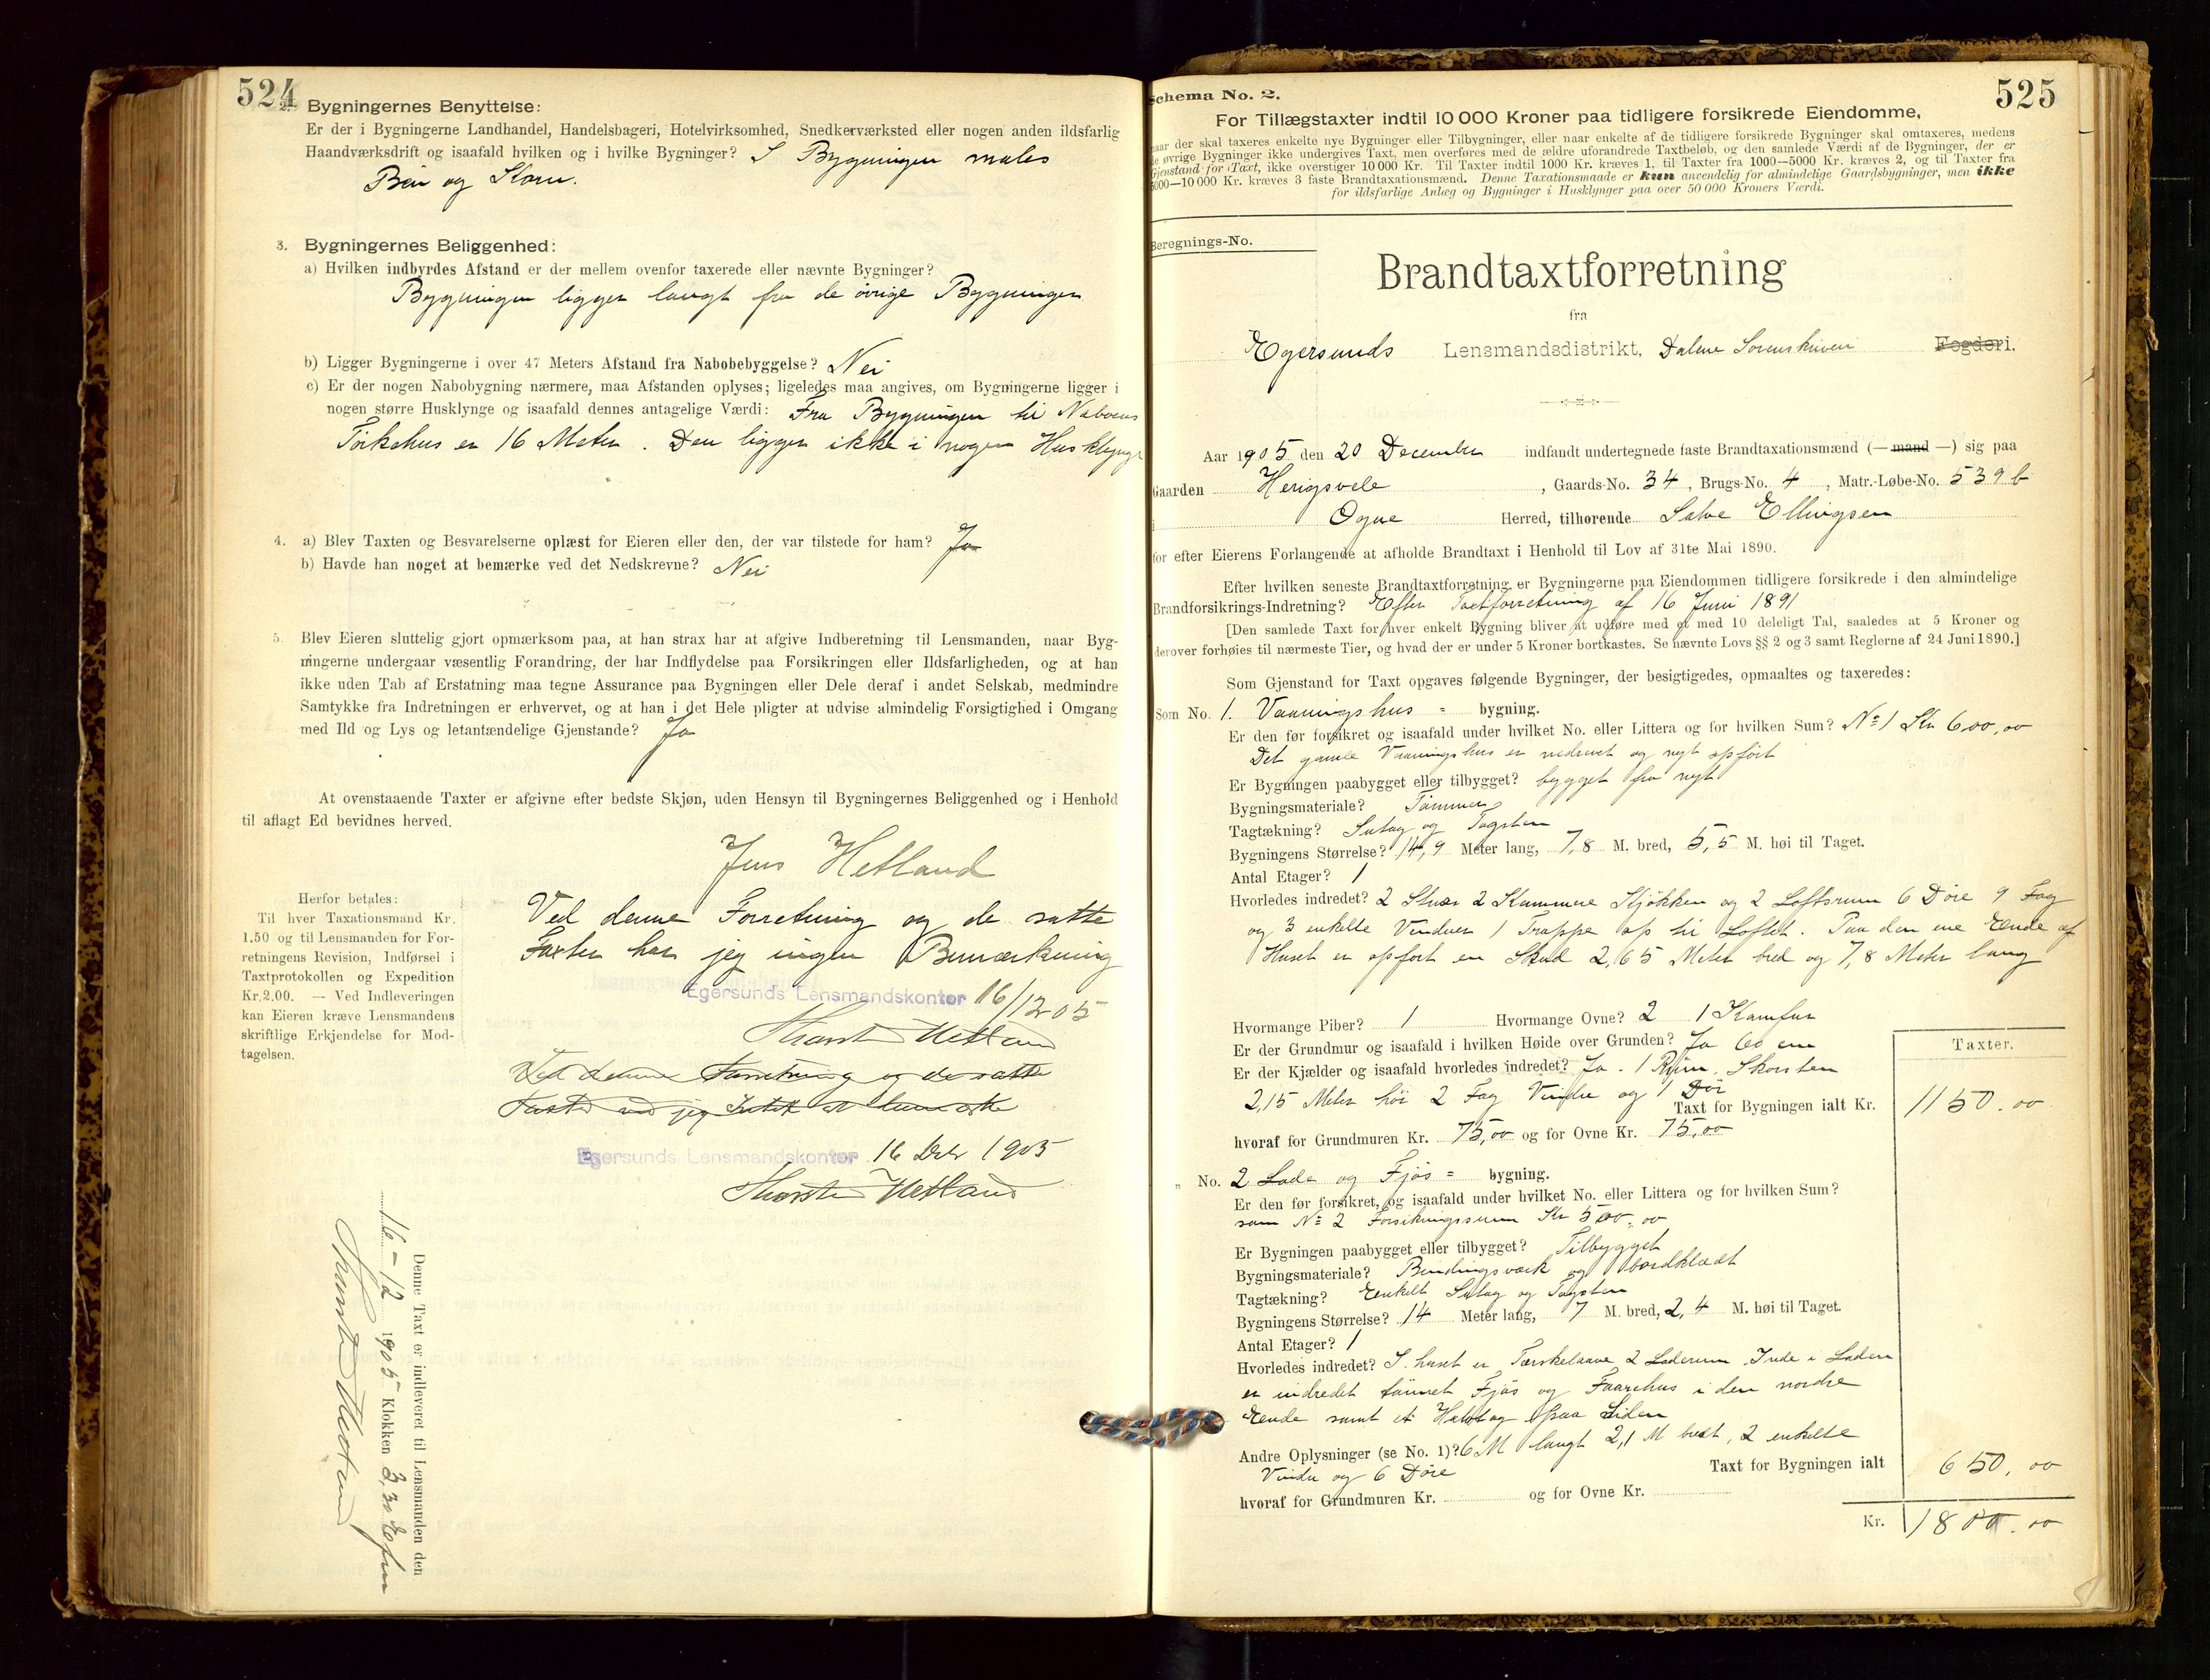 524
2. Bygningernes Benyttelse:
Er der i Bygningerne Landhandel, Handelsbageri, Hotelvirksomhed, Snedkerværksted eller nogen anden ildsfarlig
Haandværksdrift og isaafald hvilken og i hvilke Bygninger? I Bygningen males
Ben og Korn.
3. Bygningernes Beliggenhed:
a) Hvilken indbyrdes Afstand er der mellem ovenfor taxerede eller nævnte Bygninger?
Bygningen ligger langt fra de øvrige Bygninger
b) Ligger Bygningerne i over 47 Meters Afstand fra Nabobebyggelse? Nei
c) Er der nogen Nabobygning nærmere, maa Afstanden oplyses; ligeledes maa angives, om Bygningerne ligger i
nogen større Husklynge og isaafald dennes antagelige Værdi: Fra Bygningen til Naboens
Tørkehus er 16 Meter. Den ligger ikke i nogen Husklynge
4. a) Blev Taxten og Besvarelserne oplæst for Eieren eller den, der var tilstede for ham? Ja
b) Havde han noget at bemærke ved det Nedskrevne? Nei
5. Blev Eieren sluttelig gjort opmærksom paa, at han strax har at afgive Indberetning til Lensmanden, naar Byg-
ningerne undergaar væsentlig Forandring, der har Indflydelse paa Forsikringen eller Ildsfarligheden, og at han
ikke uden Tab af Erstatning maa tegne Assurance paa Bygningen eller Dele deraf i andet Selskab, medmindre
Samtykke fra Indretningen er erhvervet, og at han i det Hele pligter at udvise almindelig Forsigtighed i Omgang
med Ild og Lys og letantændelige Gjenstande? Ja
At ovenstaaende Taxter er afgivne efter bedste Skjøn, uden Hensyn til Bygningernes Beliggenhed og i Henhold
til aflagt Ed bevidnes herved.
Jens Hetland
Herfor betales:
Til hver Taxationsmand Kr.
1.50 og til Lensmanden for For-
retningens Revision, Indførsel i
Taxtprotokollen og Expedition
Kr. 2,00. — Ved Indleveringen
kan Eieren kræve Lensmandens
skriftlige Erkjendelse for Mod-
tagelsen.
Ved denne Forretning og de satte
Taxter har jeg ingen Bemærkning
Egersunds Lensmandskontor 16/12 05
Hetland
Ved denne Forretning og de satte
Egersunds Lensmandskontor 16 Dcbr 1905
Hetland
Denne Taxt er indleveret til Lensmanden den
16-12 1905 Klokken 3,30 Efm
525
Schema No. 2.
For Tillægstaxter indtil 10 000 Kroner paa tidligere forsikrede Eiendomme,
naar der skal taxeres enkelte nye Bygninger eller Tilbygninger, eller naar enkelte af de tidligere forsikrede Bygninger skal omtaxeres, medens
de øvrige Bygninger ikke undergives Taxt, men overføres med de ældre uforandrede Taxtbeløb, og den samlede Værdi af de Bygninger, der er
Gjenstand for Taxt, ikke overstiger 10 000 Kr. Til Taxter indtil 1000 Kr. kræves 1, til Taxter fra 1000—5000 Kr. kræves 2, og til Taxter fra
5000—10 000 Kr. kræves 3 faste Brandtaxationsmænd. Denne Taxationsmaade er kun anvendelig for almindelige Gaardsbygninger, men ikke
for ildsfarlige Anlæg og Bygninger i Husklynger paa over 50 000 Kroners Værdi.
Beregnings-No.
Brandtaxtforretning
fra
Egersunds Lensmandsdistrikt, Dalene Sorenskriveri Fogderi.
Aar 1905 den 20 December indfandt undertegnede faste Brandtaxationsmænd (— mand —) sig paa
Gaarden Herigsvele, Gaards-No. 34, Brugs-No. 4, Matr.-Løbe-No. 539 b
i Ogne Herred, tilhørende Salve Ellingsen
for efter Eierens Forlangende at afholde Brandtaxt i Henhold til Lov af 31te Mai 1890.
Efter hvilken seneste Brandtaxtforretning er Bygningerne paa Eiendommen tidligere forsikrede i den almindelige
Brandforsikrings-Indretning? Efter Taxtforretning af 16 Juni 1891
[Den samlede Taxt for hver enkelt Bygning bliver at udføre med et med 10 deleligt Tal, saaledes at 5 Kroner og
derover forhøies til nærmeste Tier, og hvad der er under 5 Kroner bortkastes. Se nævnte Lovs §§ 2 og 3 samt Reglerne af 24 Juni 1890.]
Som Gjenstand for Taxt opgaves følgende Bygninger, der besigtigedes, opmaaltes og taxeredes:
Som No. 1. Vaaningshus = bygning.
Er den før forsikret og isaafald under hvilket No. eller Littera og for hvilken Sum? No 1 Kr 600,00
Det gamle Vaaningshus er nedrevet og nyt opført
Er Bygningen paabygget eller tilbygget? bygget fra nyt
Bygningsmateriale? Tømmer
Tagtækning? Sutag og Tagsten
Bygningens Størrelse? 14,9 Meter lang, 7,8 M. bred, 5,5 M. høi til Taget.
Antal Etager? 1
Hvorledes indredet? 2 Stuer 2 Kammere Kjøkken og 2 Loftsrum 6 Døre 9 Fag
og 3 enkelte Vinduer 1 Trappe op til Loftet. Paa den ene Ende af
Huset er opført en Skud 2,65 Meter bred og 7,8 Meter lang
Hvormange Piber? 1 Hvormange Ovne? 2 1 Komfur
Er der Grundmur og isaafald i hvilken Høide over Grunden? Ja 60 cm
Er der Kjælder og isaafald hvorledes indredet? Ja. 1 Rum. Skorsten
2,15 Meter høi 2 Fag Vindu og 1 Dør
Taxter.
Taxt for Bygningen ialt Kr. 1150.00
hvoraf for Grundmuren Kr. 75,00 og for Ovne Kr. 75,00
" No. 2 Lade og Fjøs = bygning.
Er den før forsikret, og isaafald under hvilket No. eller Littera og for hvilken Sum?
som No 2 Forsikringssum Kr 500,00
Er Bygningen paabygget eller tilbygget? Tilbygget
Bygningsmateriale? Bindingsværk og bordklædt
Tagtækning? Enkelt Sutag og Tagsten
Bygningens Størrelse? 14 Meter lang, 7 M. bred, 2,4 M. høi til Taget.
Antal Etager? 1
Hvorledes indredet? I huset er Tærskelaave 2 Laderum. Inde i Laden
er indredet tømret Fjøs og Faarehus i den nordre
Ende samt et Halvtag paa Siden
Andre Oplysninger (se No. 1)? 6 M langt 2,1 M bredt, 2 enkelte
Vindu og 6 Døre
Taxt for Bygningen ialt 650,00
hvoraf for Grundmuren Kr. og for Ovne Kr.
Kr. 1800.00